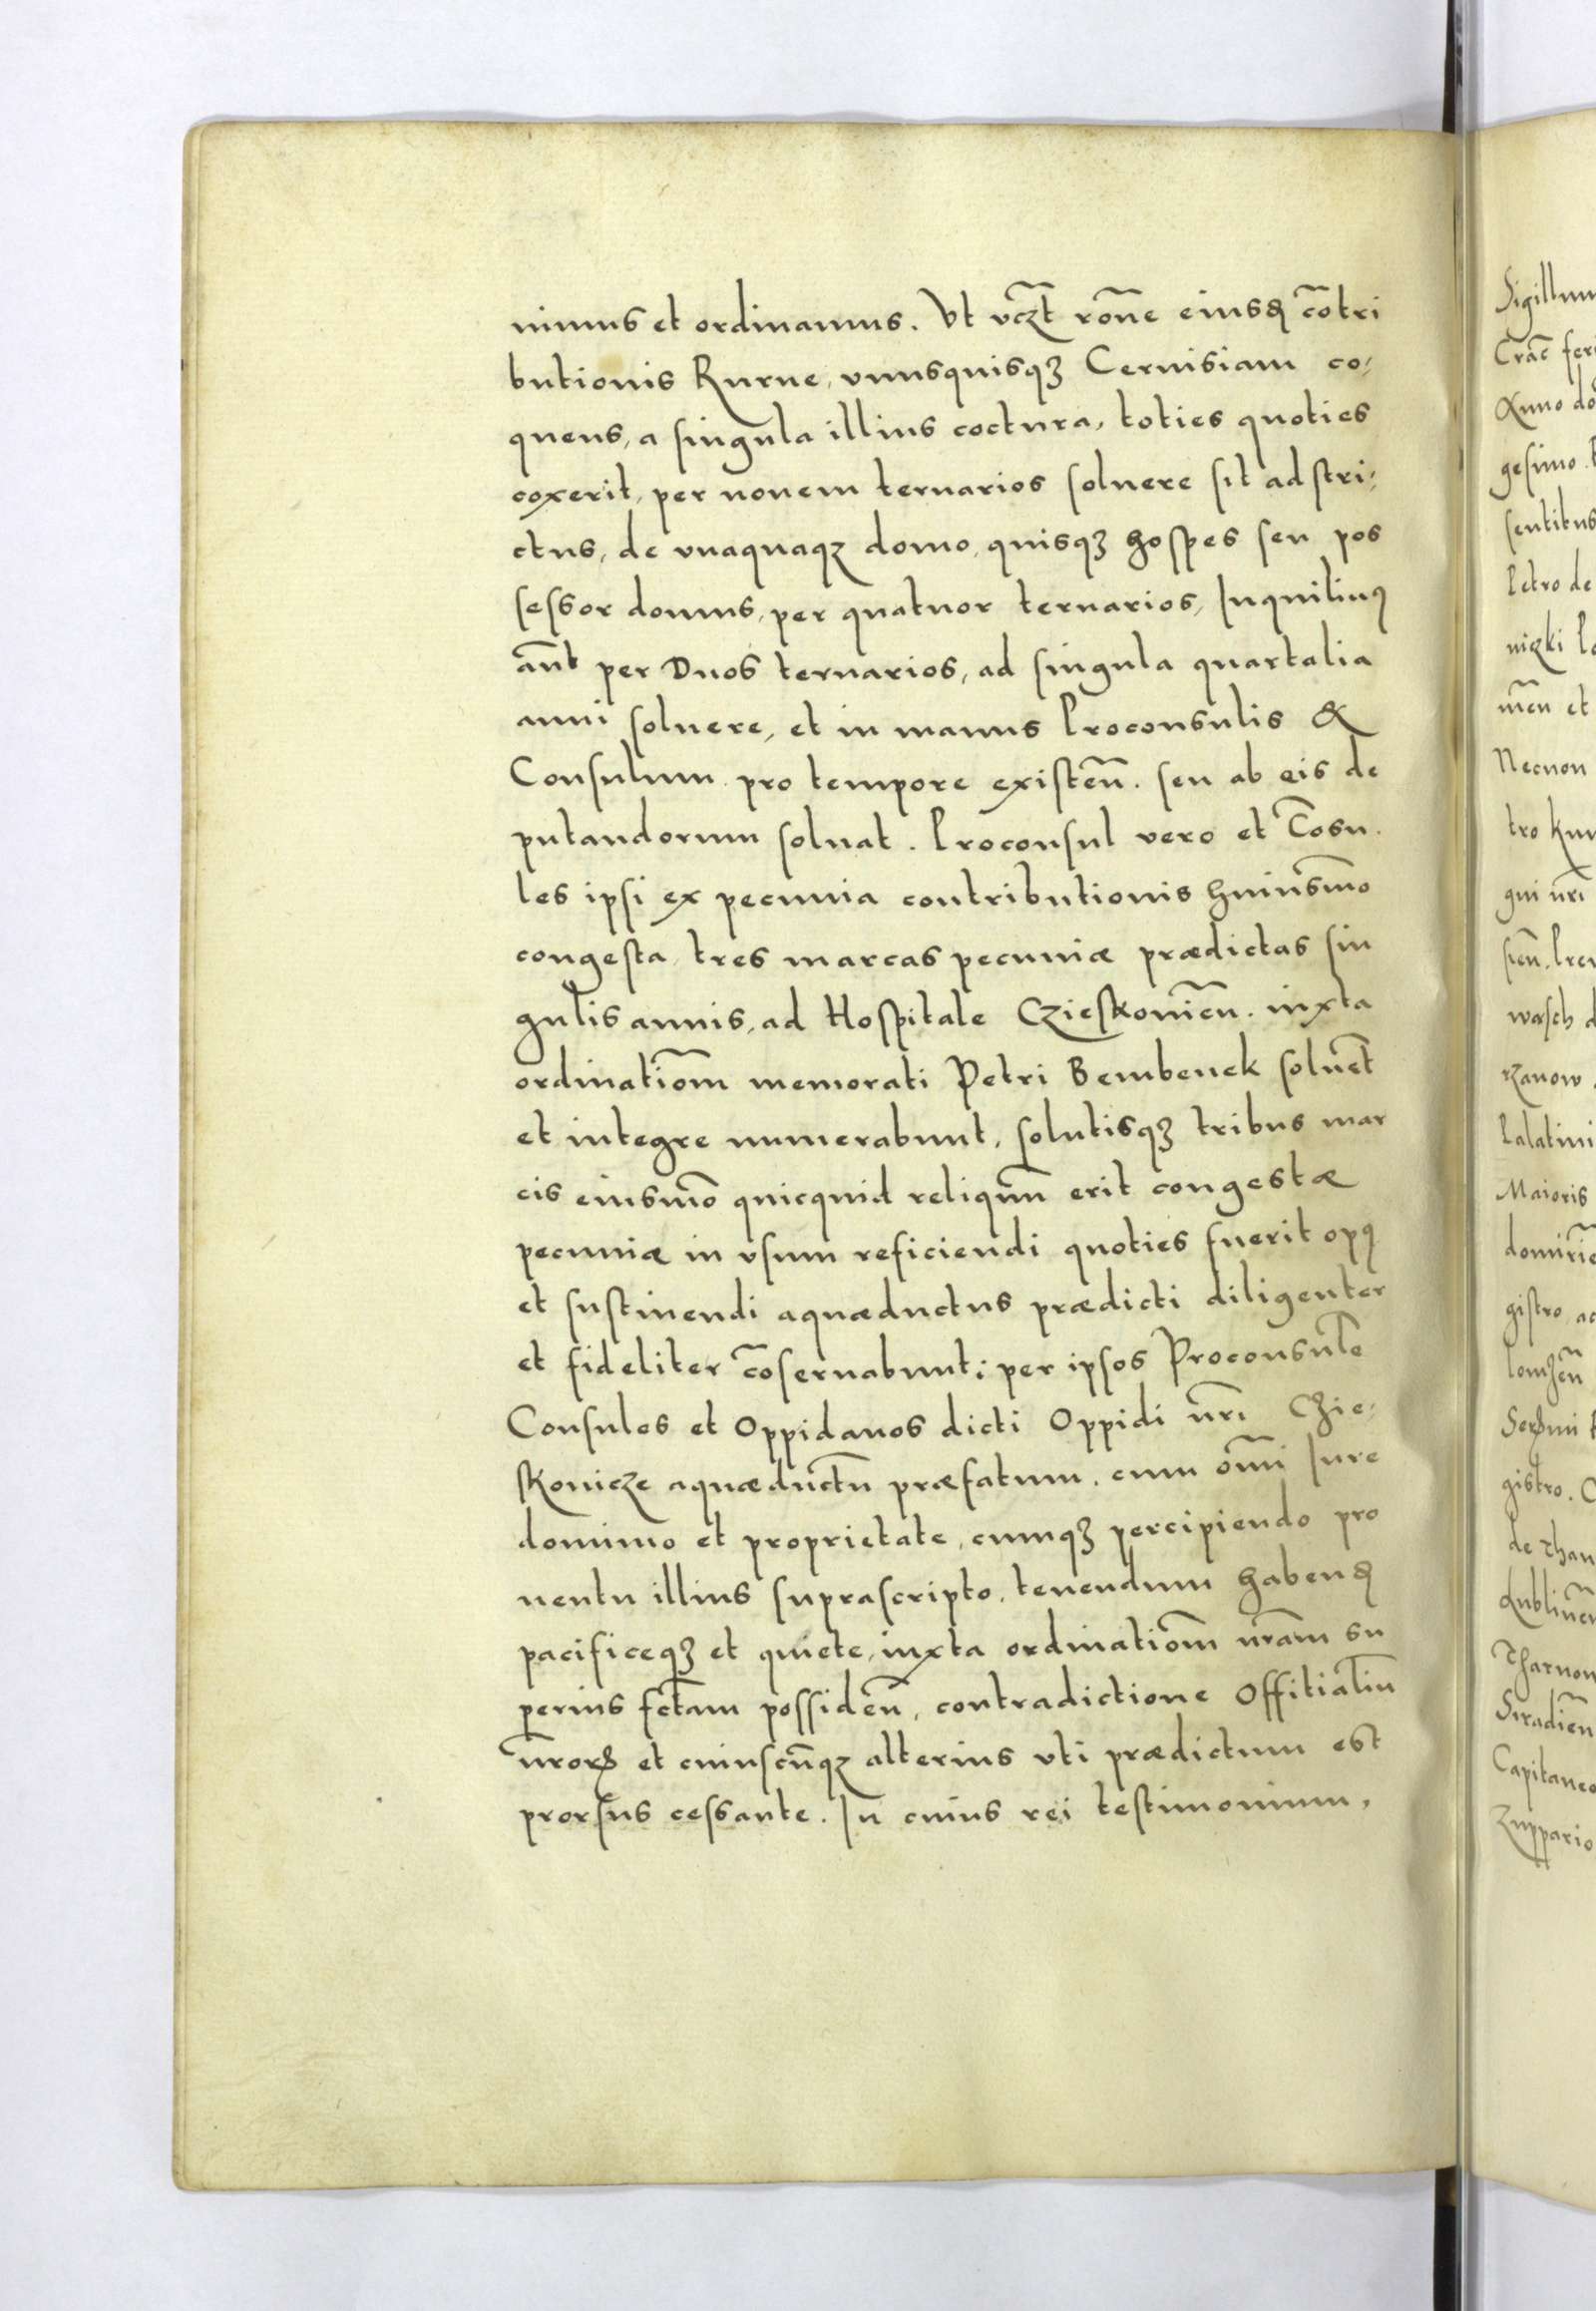 nimus et ordinamus. Vt vcz̄t rōne eiusd cōtri
butionis Rurne, vnusquisqȝ Ceruisiam co,
quens, a singula illius coctura, toties quoties
coxerit, per nouem ternarios soluere sit adstri,
ctus, de vnaquaqȝ domo, quisqȝ hospes seu pos
sessor domus, per quatuor ternarios, Inquilinꝰ
aūt per Duos ternarios, ad singula quartalia
anni soluere, et in manus Proconsulis &
Consulum pro tempore existēn. seu ab eis de
putandorum soluat. Proconsul vero et Cōsu.
les ipsi ex pecunia contributionis huiusmō
congesta tres marcas pecuniæ prædictas sin
gulis annis, ad Hospitale Czieskouiēn. iuxta
ordinatiōm memorati Petri Bembenek soluēt
et integre numerabunt, solutisqȝ tribus mar
cis eiusmō quicquid reliquū erit congestæ
pecuniæ in vsum reficiendi quoties fuerit opꝰ
et sustinendi aquæductus prædicti diligenter
et fideliter cōseruabunt; per ipsos Proconsulē
Consules et Oppidanos dicti Oppidi nr̄i Czie,
skouicze aquæductū præfatum. cum om̄i Iure
dominio et proprietate, cumqȝ percipiendo pro
uentu illius suprascripto, tenendum habend
pacificeqȝ et quiete, iuxta ordinatiōm nr̄am su
perius fc̄tam possidēn, contradictione Offitialiū
nr̄orꝝ et cuiuscūqȝ alterius vti prædictum est
prorsus cessante. In cuius rei testimonium,
Sigillum
Crac̄ fer
Anno dō
gesimo.
sentibus
Petro de
nizki
mēn et
Necnon
tro
gni nr̄i
siēn.
wasch d
rzanow
Palatini
Maioris
gistro ac
lomzēn
gistro. C
Lubliñēn
Siradiēn
Capitaneo
Zuppario